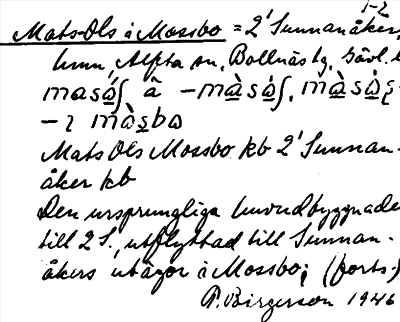 1-2
Mats Ols i Mossbo = 2' Sunnanåker,
hmn, Alfta sn, Bollnäs tg, Gävl. l
Mats Ols Mossbo kb 2' Sunnan-
åker kb
Den ursprungliga huvudbyggnaden
till 2 S., utflyttad till Sunnan-
åkers utägor i Mossbo; (forts.)
P. Birgerson 1946